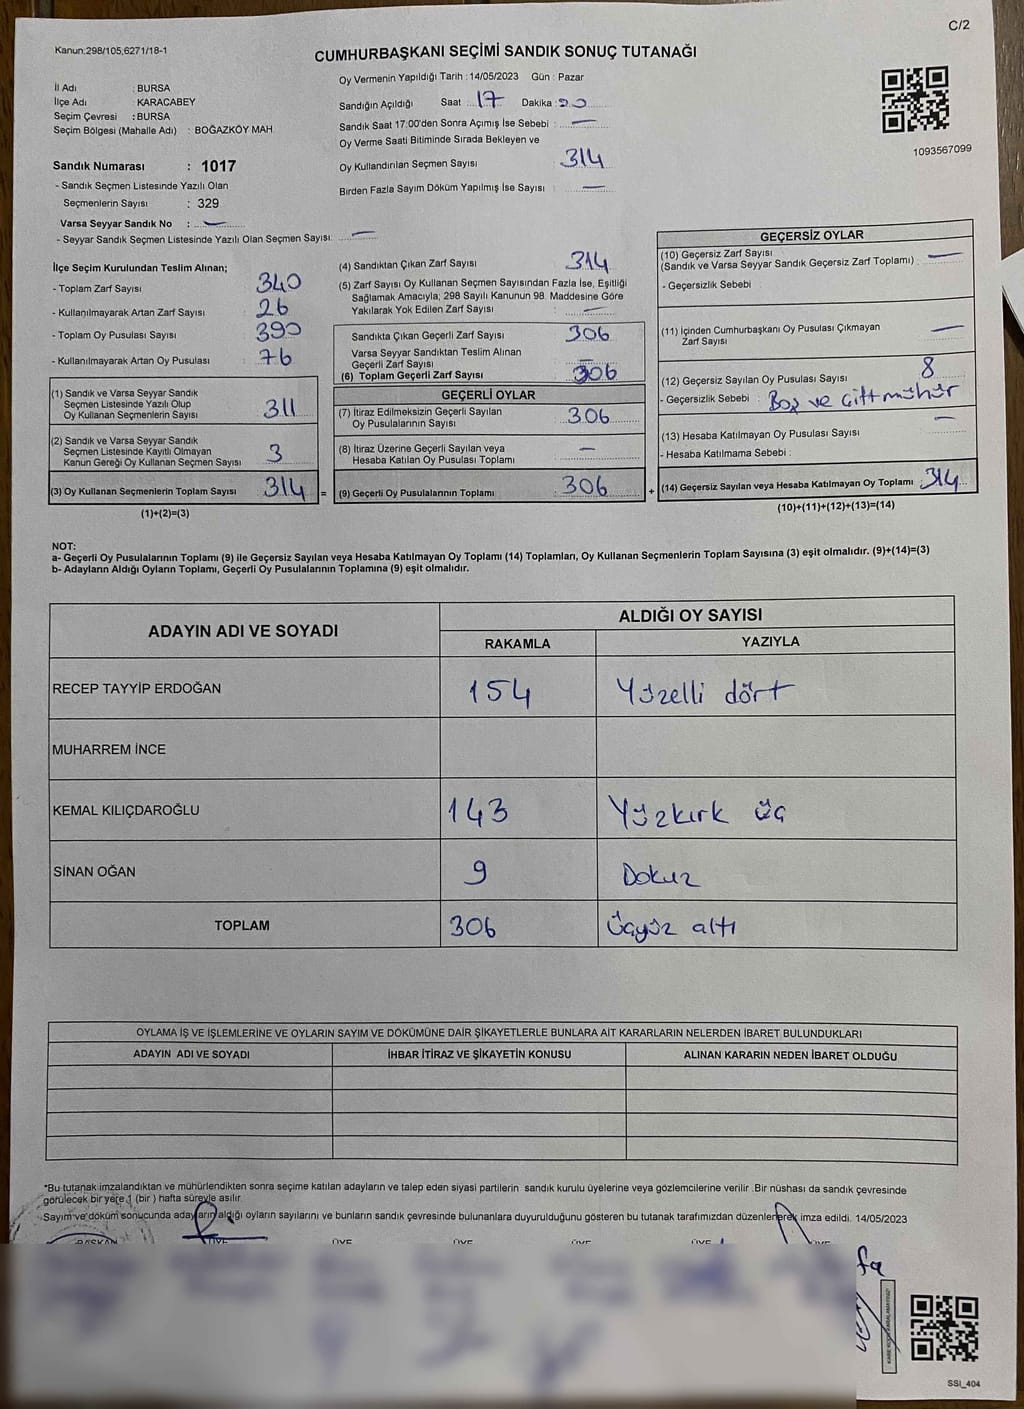 C/2
Kanun:298/105,6271/18-1
CUMHURBAŞKANI SEÇİMİ SANDIK SONUÇ TUTANAĞI
İl Adı : BURSA
İlçe Adı KARACABEY
Seçim Çevresi : BURSA
Seçim Bölgesi (Mahalle Adı) : BOĞAZKÖY MAH.
Sandık Numarası : 1017
- Sandık Seçmen Listesinde Yazılı Olan
Seçmenlerin Sayısı : 329
Varsa Seyyar Sandık No : —
- Seyyar Sandık Seçmen Listesinde Yazılı Olan Seçmen Sayısı: —
Oy Vermenin Yapıldığı Tarih : 14/05/2023 Gün : Pazar
Sandığın Açıldığı Saat : 17 Dakika : 20
Sandık Saat 17:00'den Sonra Açımış İse Sebebi : —
Oy Verme Saati Bitiminde Sırada Bekleyen ve
Oy Kullandırılan Seçmen Sayısı : 314
Birden Fazla Sayım Döküm Yapılmış İse Sayısı : —
1093567099
İlçe Seçim Kurulundan Teslim Alınan;
- Toplam Zarf Sayısı 340
- Kullanılmayarak Artan Zarf Sayısı 26
- Toplam Oy Pusulası Sayısı 390
- Kullanılmayarak Artan Oy Pusulası 76
(1) Sandık ve Varsa Seyyar Sandık
Seçmen Listesinde Yazılı Olup
Oy Kullanan Seçmenlerin Sayısı 311
(2) Sandık ve Varsa Seyyar Sandık
Seçmen Listesinde Kayıtlı Olmayan
Kanun Gereği Oy Kullanan Seçmen Sayısı 3
(3) Oy Kullanan Seçmenlerin Toplam Sayısı 314 =
(1)+(2)=(3)
(4) Sandıktan Çıkan Zarf Sayısı 314
(5) Zarf Sayısı Oy Kullanan Seçmen Sayısından Fazla İse, Eşitliği
Sağlamak Amacıyla; 298 Sayılı Kanunun 98. Maddesine Göre
Yakılarak Yok Edilen Zarf Sayısı : —
Sandıkta Çıkan Geçerli Zarf Sayısı : 306
Varsa Seyyar Sandıktan Teslim Alınan
Geçerli Zarf Sayısı : —
(6) Toplam Geçerli Zarf Sayısı : 306
GEÇERLİ OYLAR
(7) İtiraz Edilmeksizin Geçerli Sayılan
Oy Pusulalarının Sayısı : 306
(8) İtiraz Üzerine Geçerli Sayılan veya
Hesaba Katılan Oy Pusulası Toplamı : —
(9) Geçerli Oy Pusulalarının Toplamı : 306 +
GEÇERSİZ OYLAR
(10) Geçersiz Zarf Sayısı
(Sandık ve Varsa Seyyar Sandık Geçersiz Zarf Toplamı) : —
- Geçersizlik Sebebi :
(11) İçinden Cumhurbaşkanı Oy Pusulası Çıkmayan
Zarf Sayısı —
(12) Geçersiz Sayılan Oy Pusulası Sayısı 8
- Geçersizlik Sebebi : Boş ve Çift mühür
(13) Hesaba Katılmayan Oy Pusulası Sayısı —
- Hesaba Katılmama Sebebi :
(14) Geçersiz Sayılan veya Hesaba Katılmayan Oy Toplamı : 314
(10)+(11)+(12)+(13)=(14)
NOT:
a- Geçerli Oy Pusulalarının Toplamı (9) ile Geçersiz Sayılan veya Hesaba Katılmayan Oy Toplamı (14) Toplamları, Oy Kullanan Seçmenlerin Toplam Sayısına (3) eşit olmalıdır. (9)+(14)=(3)
b- Adayların Aldığı Oyların Toplamı, Geçerli Oy Pusulalarının Toplamına (9) eşit olmalıdır.
ADAYIN ADI VE SOYADI ALDIĞI OY SAYISI
RAKAMLA YAZIYLA
RECEP TAYYİP ERDOĞAN 154 Yüzelli dört
MUHARREM İNCE
KEMAL KILIÇDAROĞLU 143 Yüzkırk üç
SİNAN OĞAN 9 Dokuz
TOPLAM 306 Üçyüz altı
OYLAMA İŞ VE İŞLEMLERİNE VE OYLARIN SAYIM VE DÖKÜMÜNE DAİR ŞİKAYETLERLE BUNLARA AİT KARARLARIN NELERDEN İBARET BULUNDUKLARI
ADAYIN ADI VE SOYADI İHBAR İTİRAZ VE ŞİKAYETİN KONUSU ALINAN KARARIN NEDEN İBARET OLDUĞU
*Bu tutanak imzalandıktan ve mühürlendikten sonra seçime katılan adayların ve talep eden siyasi partilerin sandık kurulu üyelerine veya gözlemcilerine verilir. Bir nüshası da sandık çevresinde
görülecek bir yere 1 (bir) hafta süreyle asılır.
Sayım ve döküm sonucunda adayların aldığı oyların sayılarını ve bunların sandık çevresinde bulunanlara duyurulduğunu gösteren bu tutanak tarafımızdan düzenlenerek imza edildi. 14/05/2023
BAŞKAN ÜYE ÜYE ÜYE ÜYE ÜYE ÜYE
SSI_404